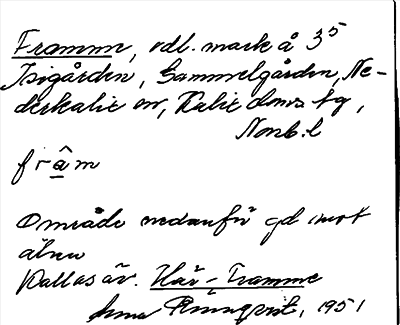 Framme, odl. mark å 3⁵
Isigården, Gammelgården, Ne-
derkalix sn, Kalix doms. tg,
Norrb. l
frâm
Område nedanför gd mot
älven
Kallas äv. Här-Framme
Anna Rönnqvist, 1951